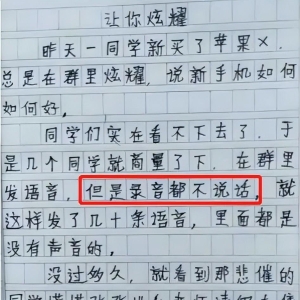 让你炫耀
昨天一同学新买了苹果X.
总是在群里炫耀,说新手机如何
如何好。
同学们实在看不下去了.于
是几个同学就商量了下.在群里
发语音.但是录音都不说话,就
这样发了几十条语音,里面都是
没有声音的。
没过多久,就看到那悲催的